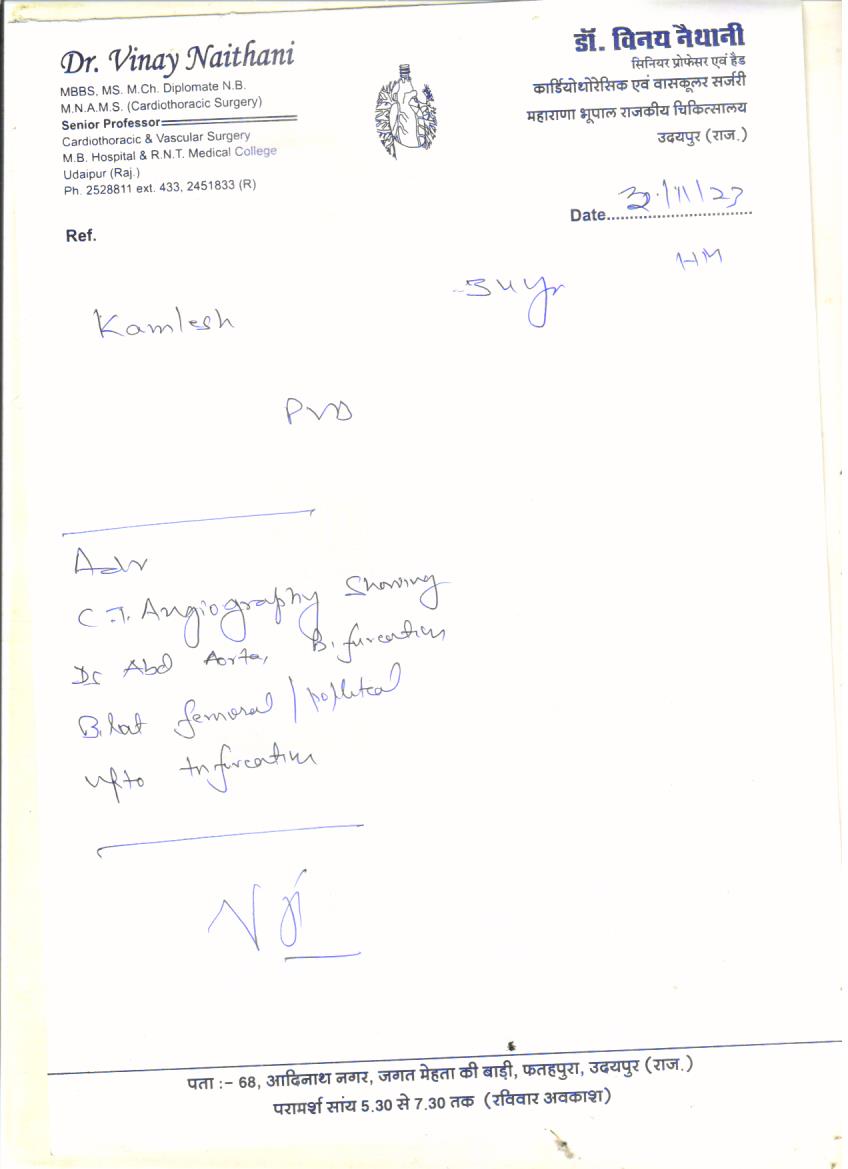 Dr. Vinay Naithani
MBBS, MS. M.Ch. Diplomate N.B.
M.N.A.M.S. (Cardiothoracic Surgery)
Senior Professor
Cardiothoracic & Vascular Surgery
M.B. Hospital & R.N.T. Medical College
Udaipur (Raj.)
Ph. 2528811 ext. 433, 2451833 (R)
डॉ. विनय नैथानी
सिनियर प्रोफेसर एवं हैड
कार्डियोथोरेसिक एवं वासकूलर सर्जरी
महाराणा भूपाल राजकीय चिकित्सालय
उदयपुर (राज.)
Date. /11/23
Ref.
HM
Kamlesh 34 yr
PVD
Adv
C.T. Angiography Showing
Abd Aorta, Bifurcation
Bilat femoral / popliteal
upto trifurcation
पता :– 68, आदिनाथ नगर, जगत मेहता की बाड़ी, फतहपुरा, उदयपुर (राज.)
परामर्श सांय 5.30 से 7.30 तक (रविवार अवकाश)